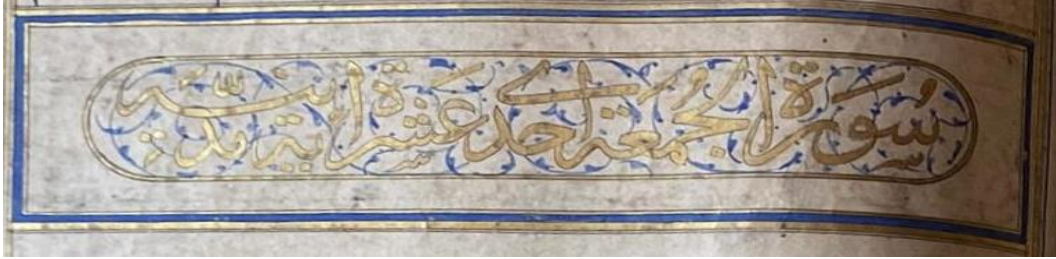 سورة الجمعة احدى عشرة اية مدنية